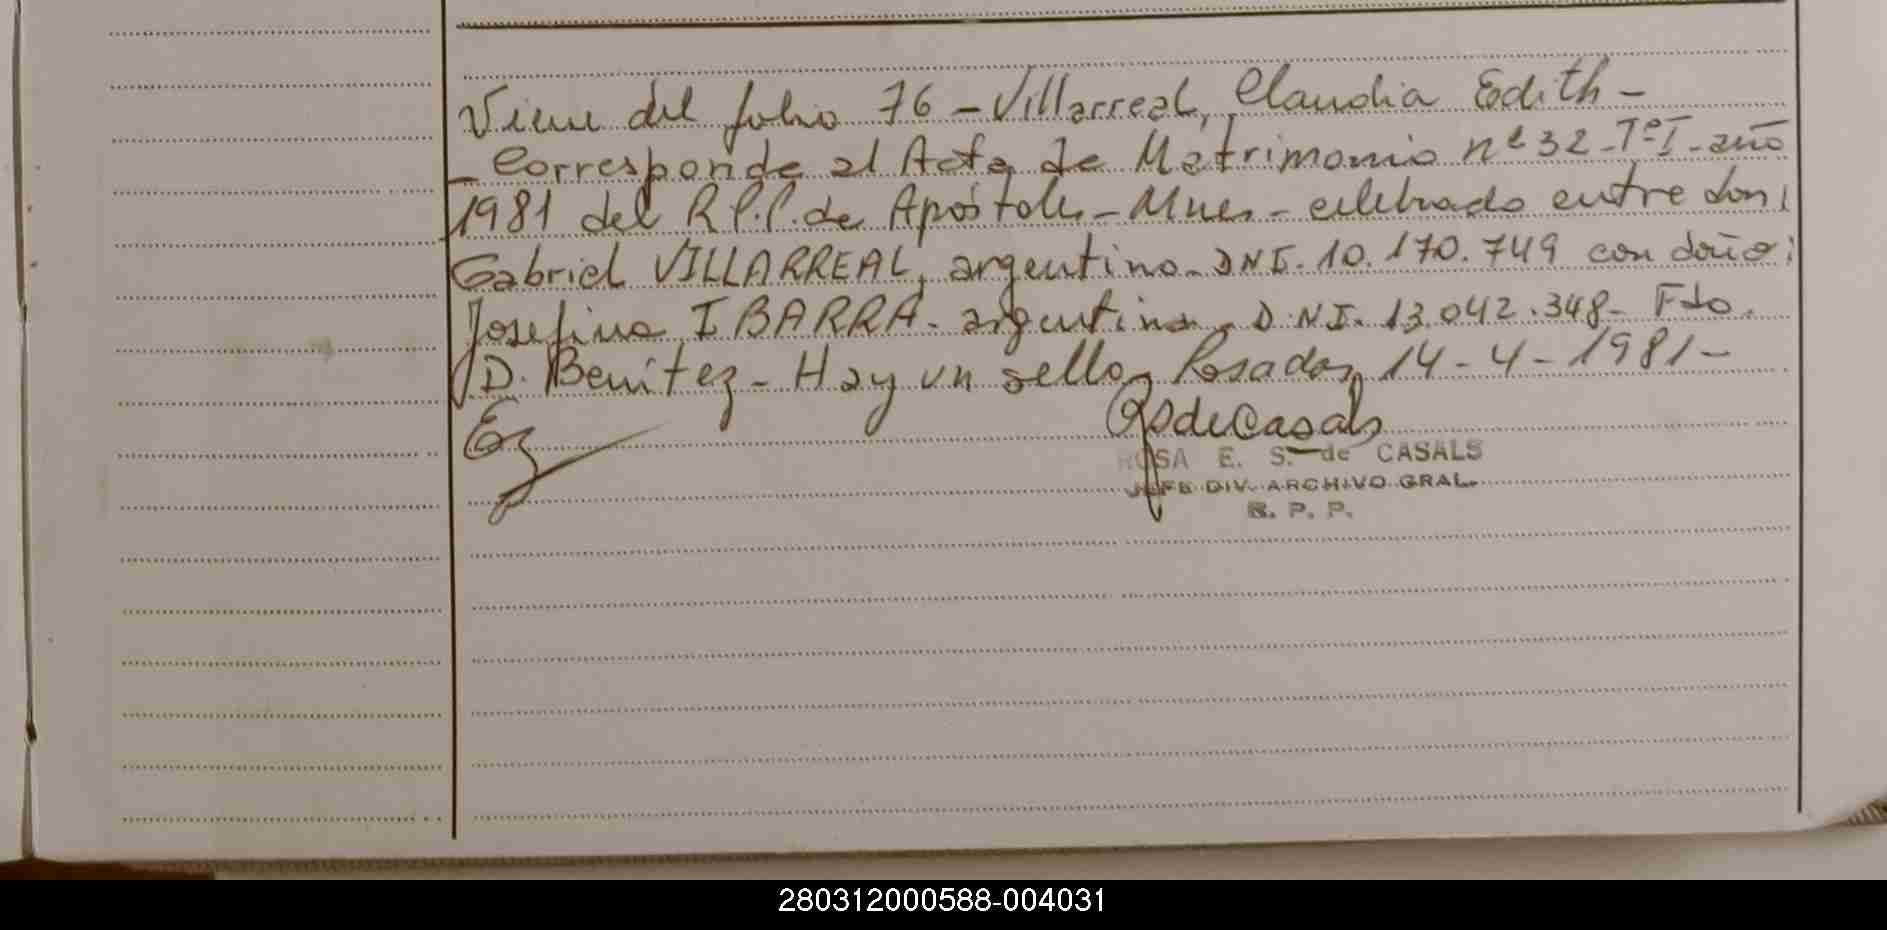 Viene del folio 76 - Villarreal, Claudia Edith -
- Corresponde al Acta de Matrimonio nº 32 - Tº I - año
1981 del R.P.P. de Apóstoles - Mnes - celebrado entre don:
Gabriel VILLARREAL, argentino - DNI. 10.170.749 con doña:
Josefina IBARRA - argentina - D.N.I. 13.042.348 - Fdo.
D. Benitez - Hay un sello, Posadas, 14 - 4 - 1981 -
RSdeCasals
ROSA E. S. de CASALS
JEFE DIV. ARCHIVO GRAL.
R. P. P.
280312000588-004031